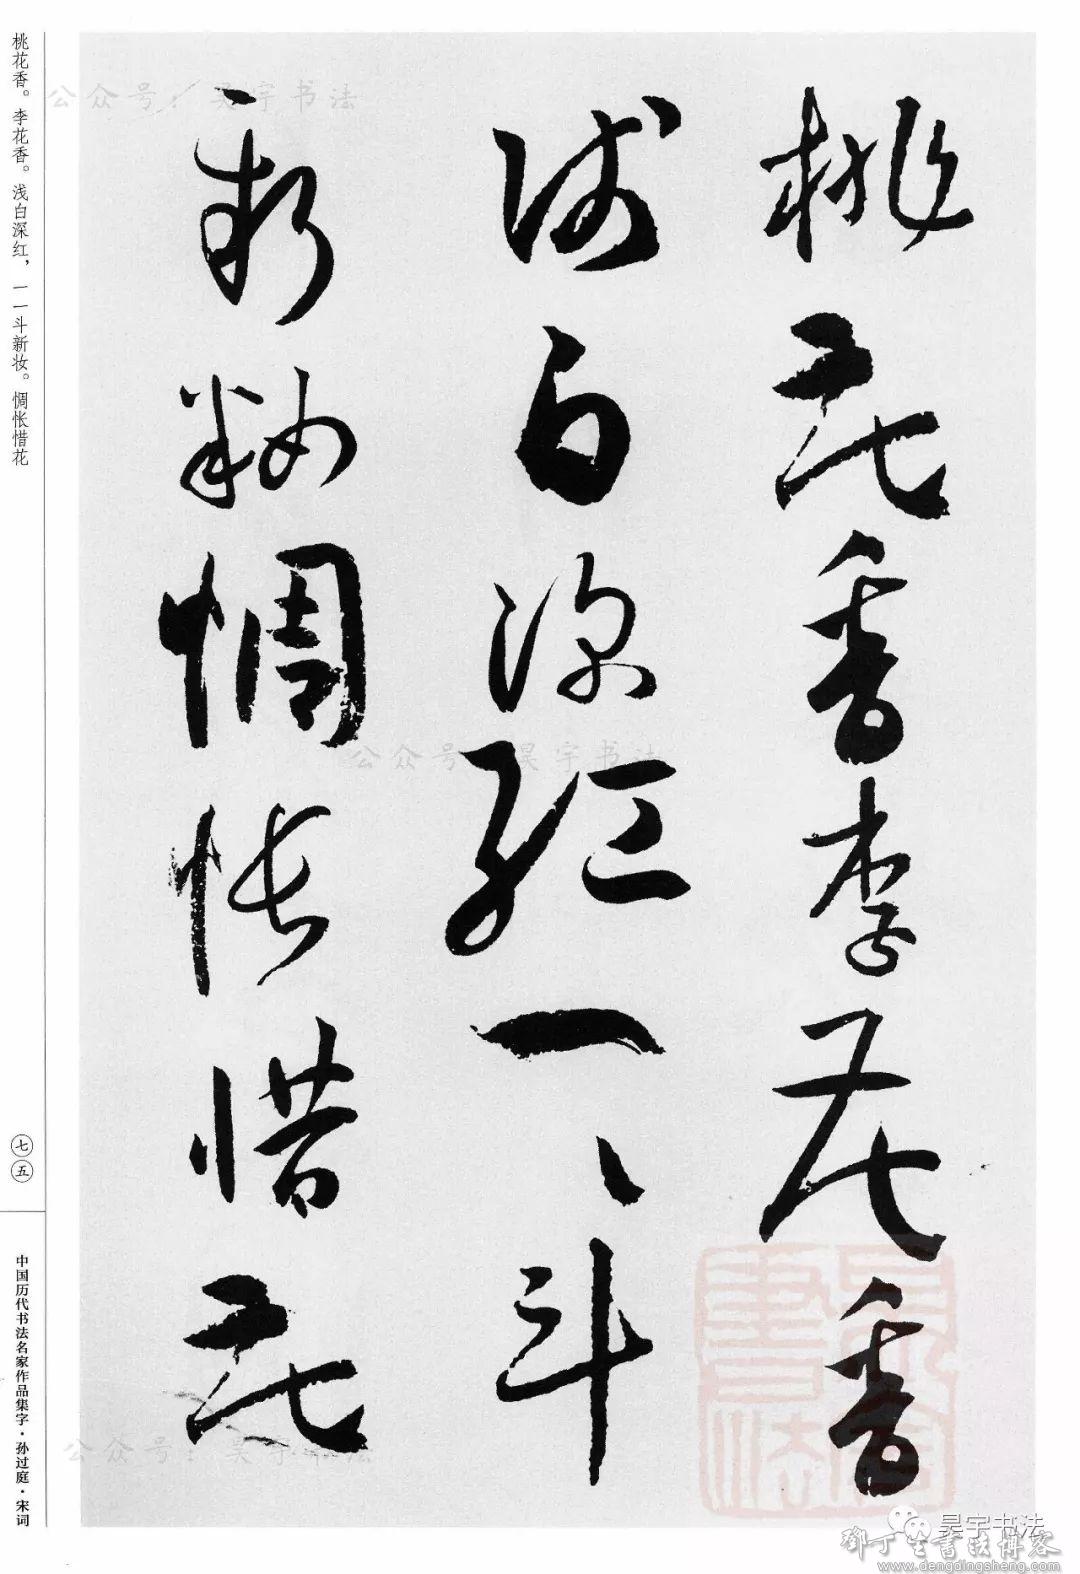 桃花香李花香
浅白深红一、斗
新妆惆怅惜花
桃花香。李花香。浅白深红，一一斗新妆。惆怅惜花
七五
中国历代书法名家作品集字·孙过庭·宋词
公众号：昊宇书法
公众号：昊宇书法
公众号：昊宇书法
昊宇书法
昊宇书法
鄧丁生書法博客
www.dengdingsheng.com